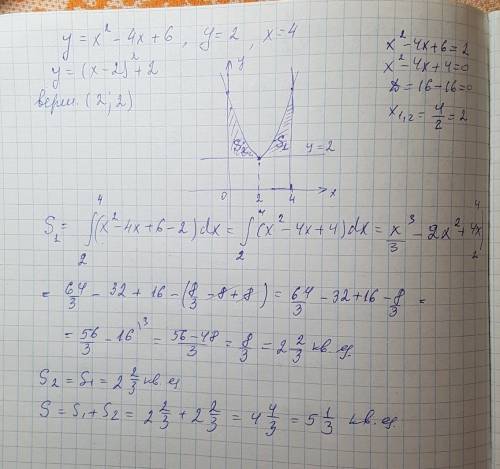 y = x² - 4x + 6, y = 2, x = 4
y = (x-2)² + 2
верш. (2; 2)
x² - 4x + 6 = 2
x² - 4x + 4 = 0
D = 16 - 16 = 0
x₁,₂ = 4/2 = 2
y
S₂ S₁ y = 2
0 2 4 x
S₁ = ∫₂⁴ (x² - 4x + 6 - 2) dx = ∫₂⁴ (x² - 4x + 4) dx = x³/3 - 2x² + 4x |₂⁴
= 64/3 - 32 + 16 - (8/3 - 8 + 8) = 64/3 - 32 + 16 - 8/3 =
= 56/3 - 16\³ = (56 - 48)/3 = 8/3 = 2 2/3 кв. ед.
S₂ = S₁ = 2 2/3 кв. ед
S = S₁ + S₂ = 2 2/3 + 2 2/3 = 4 4/3 = 5 1/3 кв. ед.